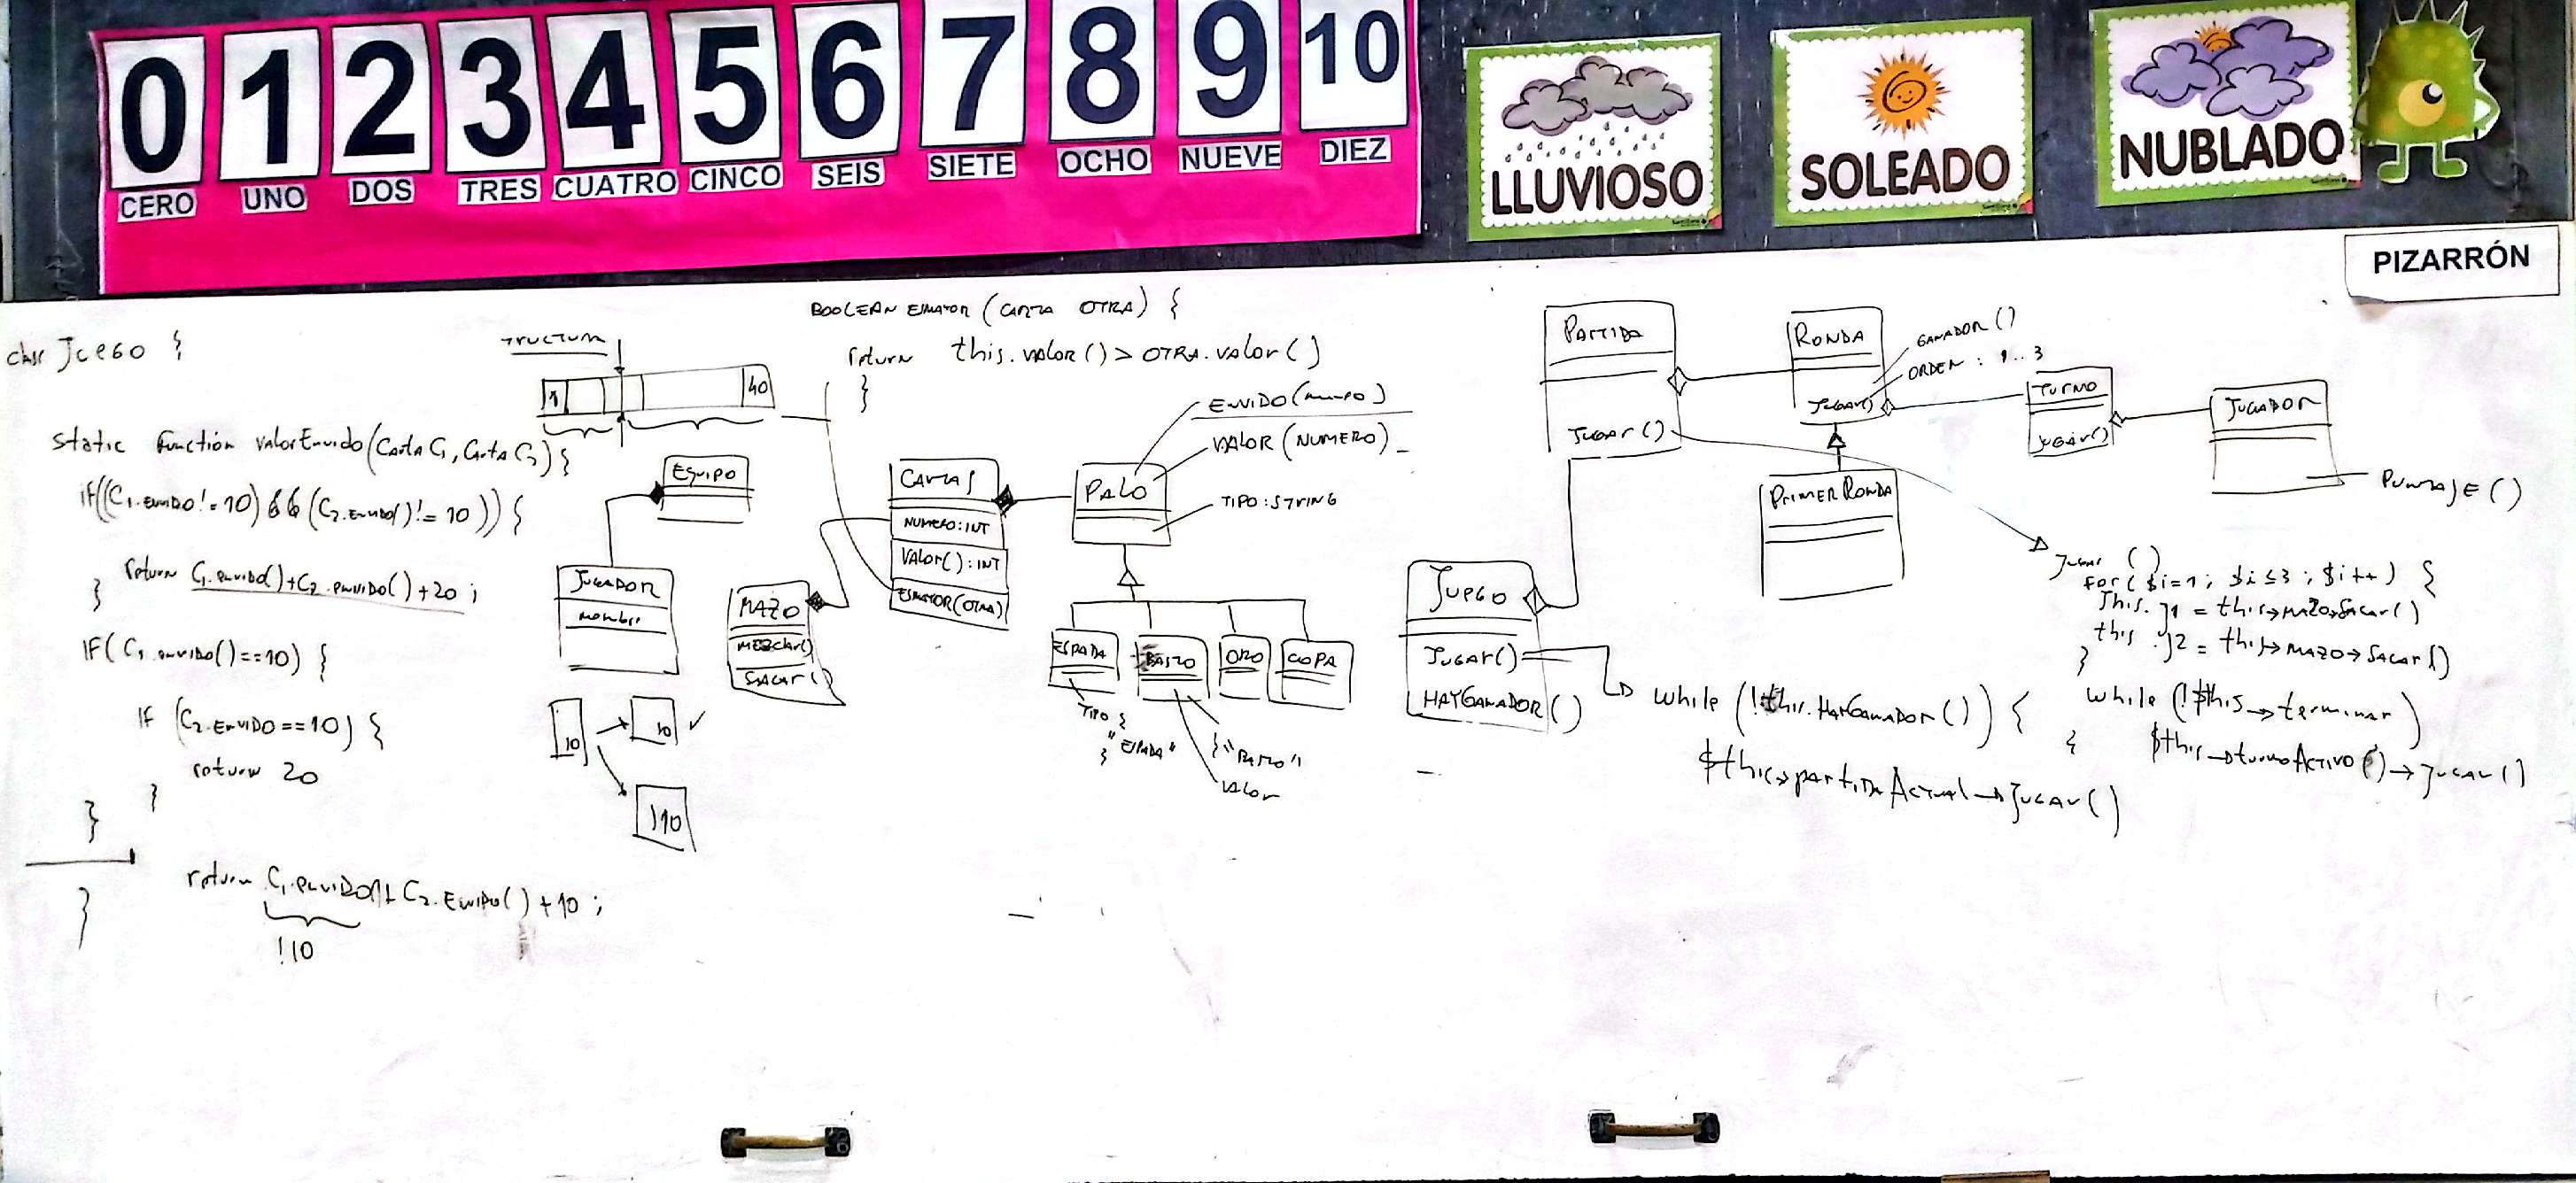 0 1 2 3 4 5 6 7 8 9 10
CERO UNO DOS TRES CUATRO CINCO SEIS SIETE OCHO NUEVE DIEZ
LLUVIOSO
SOLEADO
NUBLADO
PIZARRÓN
class Juego {
static function valorEnvido(Carta C1, Carta C2) {
if((C1.envido != 10) && (C2.envido() != 10)) {
return C1.envido()+C2.envido()+20;
}
IF( C1.envido()==10) {
IF (C2.ENVIDO==10) {
return 20
}
}
return C1.envido()+C2.Envido()+10;
!10
}
TRUCTURA
1 40
BOOLEAN ESMAYOR (CARTA OTRA) {
return this.VALOR() > OTRA.valor()
}
EQUIPO
JUGADOR
nombre
10
10 ✓
!10
MAZO
MEZCLAR()
SACAR()
CARTAS
NUMERO:INT
VALOR():INT
ESMAYOR(OTRA)
ENVIDO(numero)
VALOR(NUMERO)
TIPO:STRING
PALO
ESPADA
BASTO
ORO
COPA
TIPO {
"ESPADA"
}
{"BASTO"
VALOR
PARTIDA
JUGAR()
RONDA
JUGAR()
GANADOR()
ORDEN: 1..3
TURNO
JUGAR()
JUGADOR
PUNTAJE()
PRIMER RONDA
JUEGO
JUGAR()
HAYGANADOR()
while (!this.HAYGANADOR()) {
$this->partidaActual->JUGAR()
Jugar ()
for($i=1; $i≤3; $i++) {
This.J1 = this->MAZO->SACAR()
this.J2 = this->MAZO->SACAR()
}
while (!$this->terminar)
{ $this->turnoActivo()->JUGAR()